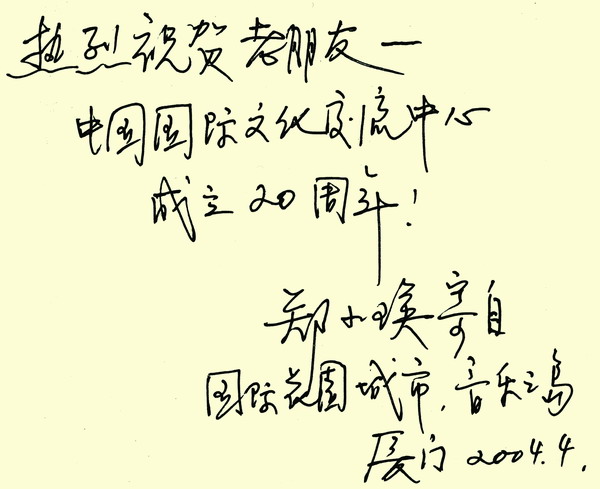 热烈祝贺老朋友一
中国国际文化交流中心
成立20周年！
郑小瑛寄自
国际花园城市，音乐之岛
厦门 2004.4.